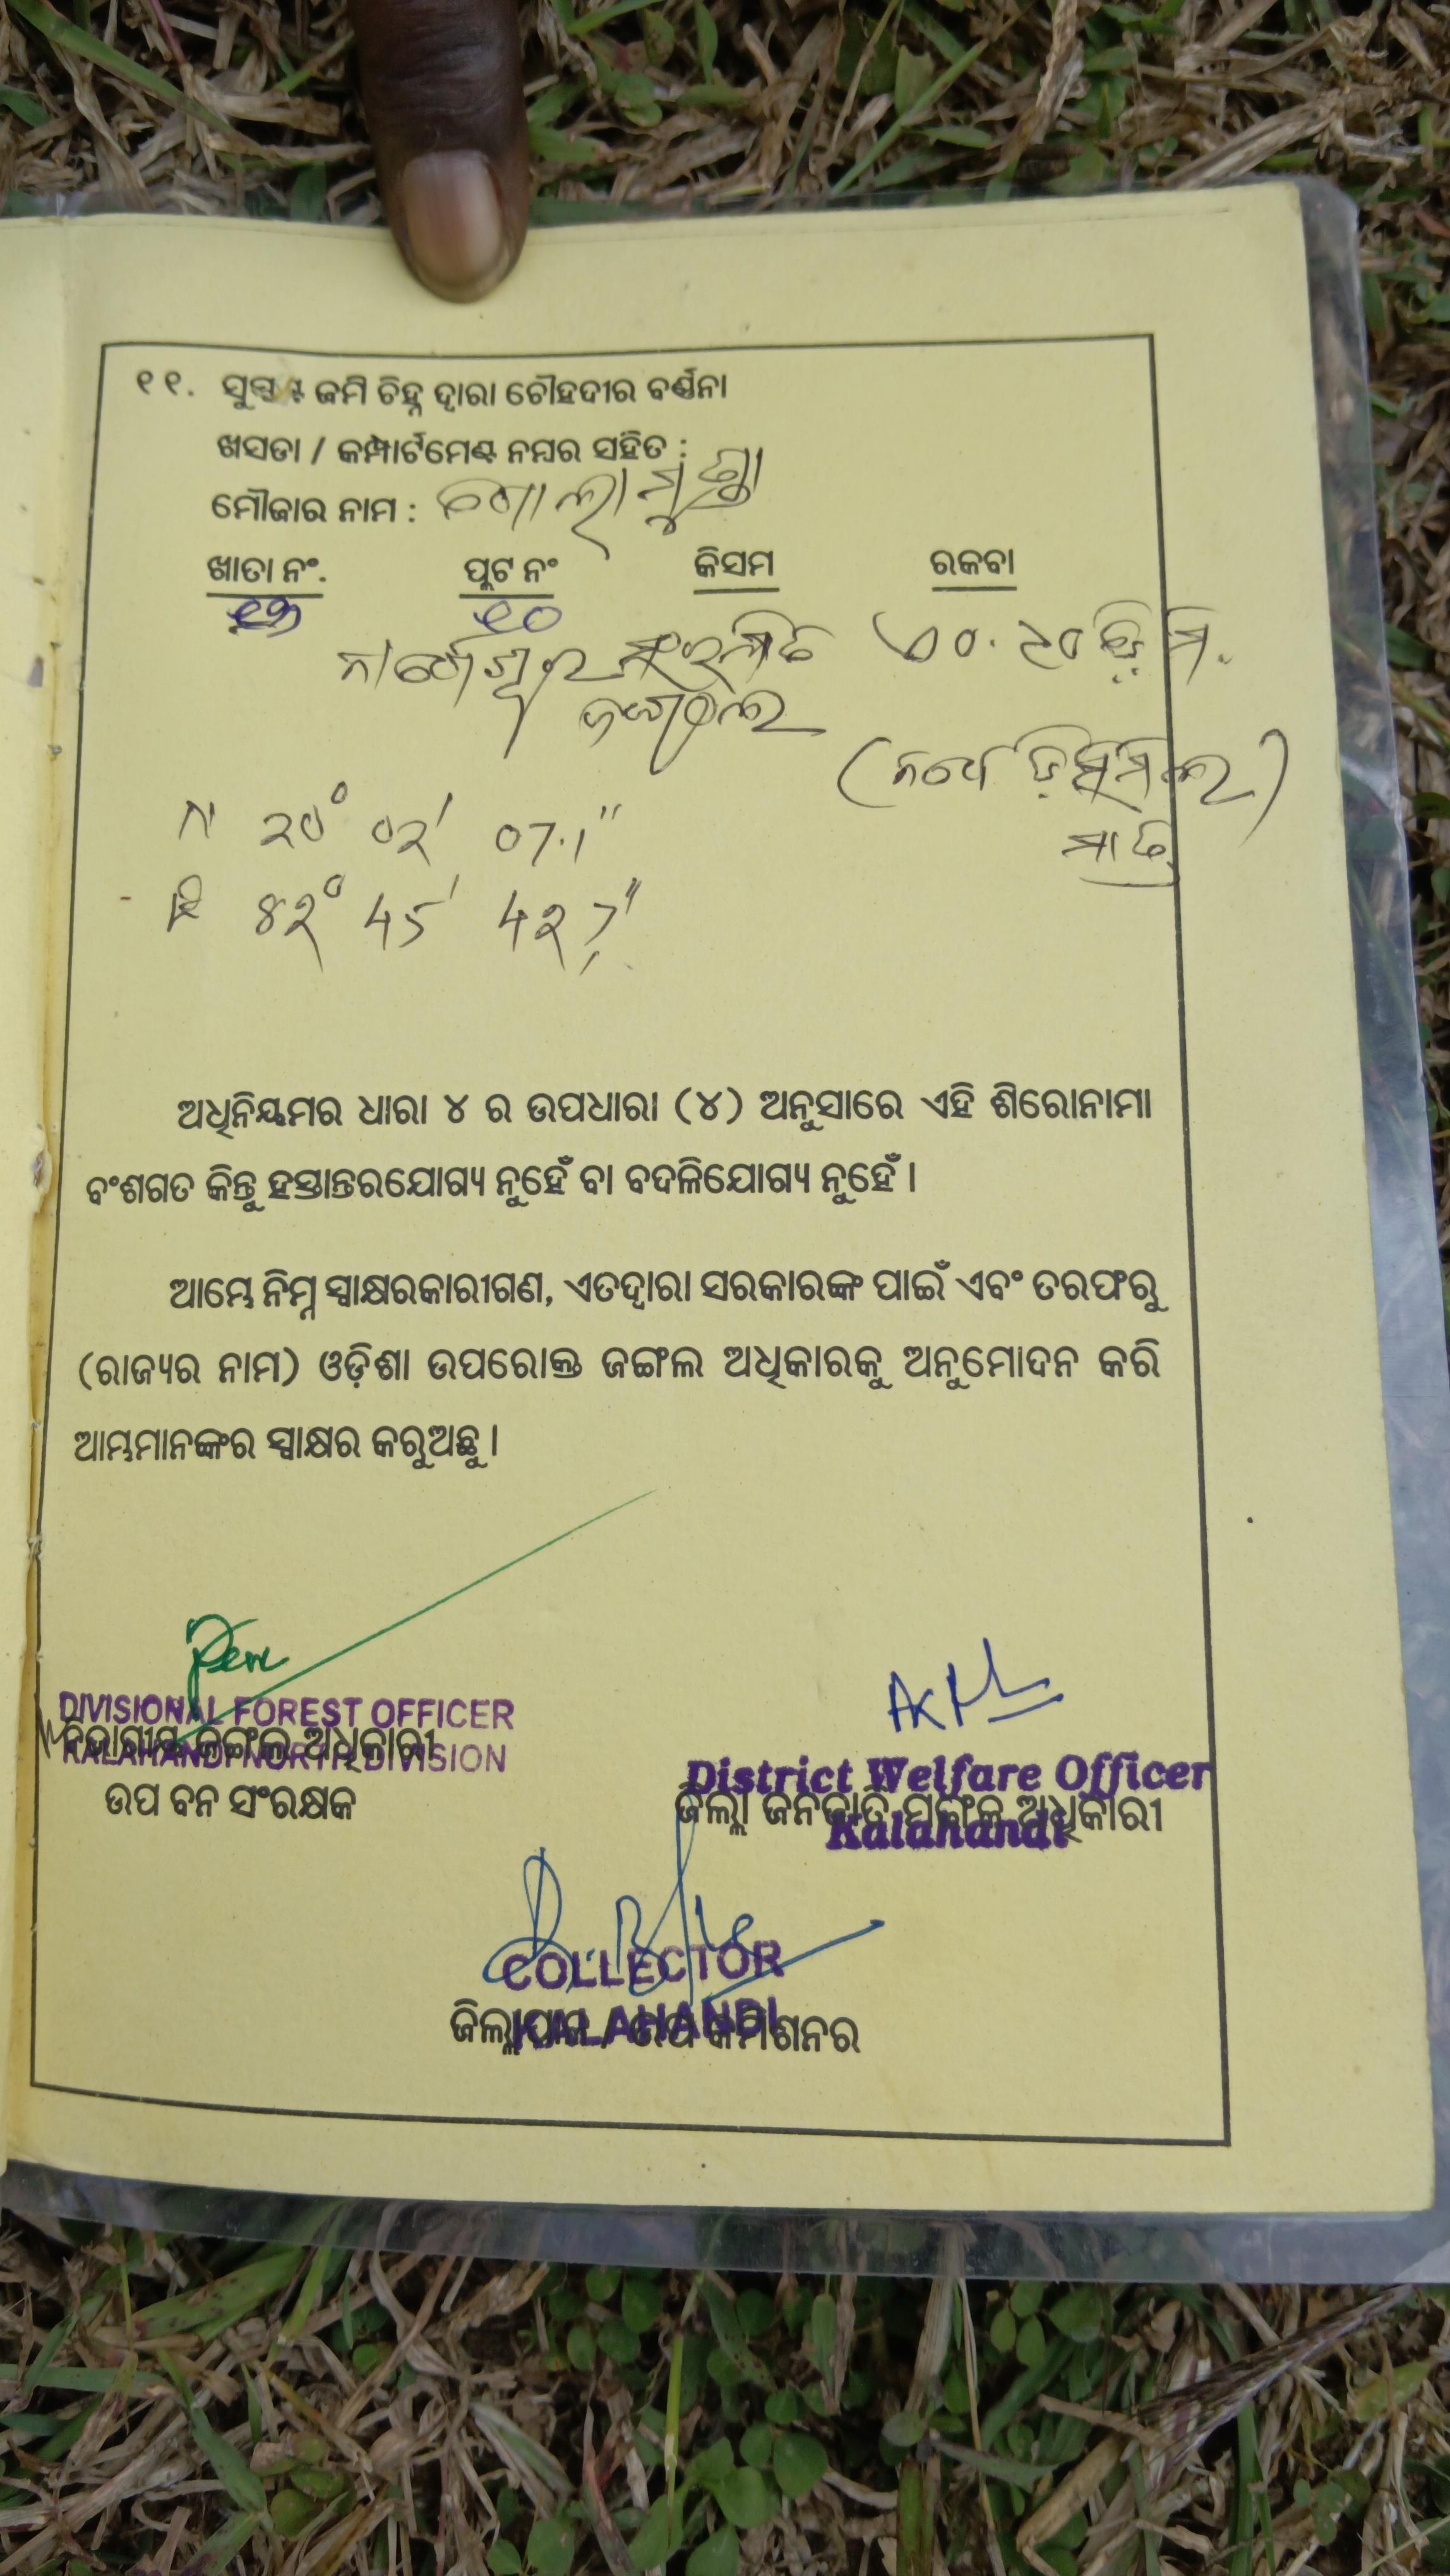 ୧୧. ସୁସ୍ପଷ୍ଟ ଜମି ଚିହ୍ନ ଦ୍ୱାରା ଚୌହଦୀର ବର୍ଣ୍ଣନା
ଖସଡା / କମ୍ପାର୍ଟମେଣ୍ଟ ନମ୍ବର ସହିତ :
ମୌଜାର ନାମ :
ଖାତା ନଂ. ପ୍ଲଟ ନଂ କିସମ ରକବା
୧୦
ଜଙ୍ଗଲ
N 20° 02' 07.1"
E 82° 45'
ମାତ୍ର
ଅଧିନିୟମର ଧାରା ୪ ର ଉପଧାରା (୪) ଅନୁସାରେ ଏହି ଶିରୋନାମା
ବଂଶଗତ କିନ୍ତୁ ହସ୍ତାନ୍ତରଯୋଗ୍ୟ ନୁହେଁ ବା ବଦଳିଯୋଗ୍ୟ ନୁହେଁ ।
ଆମ୍ଭେ ନିମ୍ନ ସ୍ୱାକ୍ଷରକାରୀଗଣ, ଏତଦ୍ୱାରା ସରକାରଙ୍କ ପାଇଁ ଏବଂ ତରଫରୁ
(ରାଜ୍ୟର ନାମ) ଓଡ଼ିଶା ଉପରୋକ୍ତ ଜଙ୍ଗଲ ଅଧିକାରକୁ ଅନୁମୋଦନ କରି
ଆମ୍ଭମାନଙ୍କର ସ୍ୱାକ୍ଷର କରୁଅଛୁ ।
DIVISIONAL FOREST OFFICER
ବିଭାଗୀୟ ଜଙ୍ଗଲ ଅଧିକାରୀ
KALAHANDI NORTH DIVISION
ଉପ ବନ ସଂରକ୍ଷକ
District Welfare Officer
ଜିଲ୍ଲା ଜନଜାତି ମଙ୍ଗଳ ଅଧିକାରୀ
Kalahandi
COLLECTOR
KALAHANDI
ଜିଲ୍ଲାପାଳ / ଉପ କମିଶନର